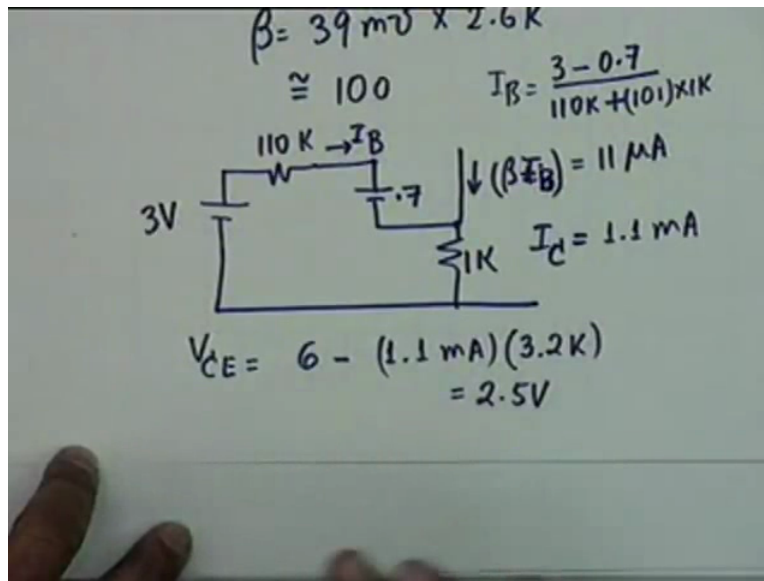 β = 39 m℧ × 2.6K
≅ 100
I_B = (3 - 0.7) / (110K + (101) × 1K)
110 K → I_B
3V
.7
↓ (βI_B) = 11 μA
1K
I_C = 1.1 mA
V_CE = 6 - (1.1 mA)(3.2K)
= 2.5V